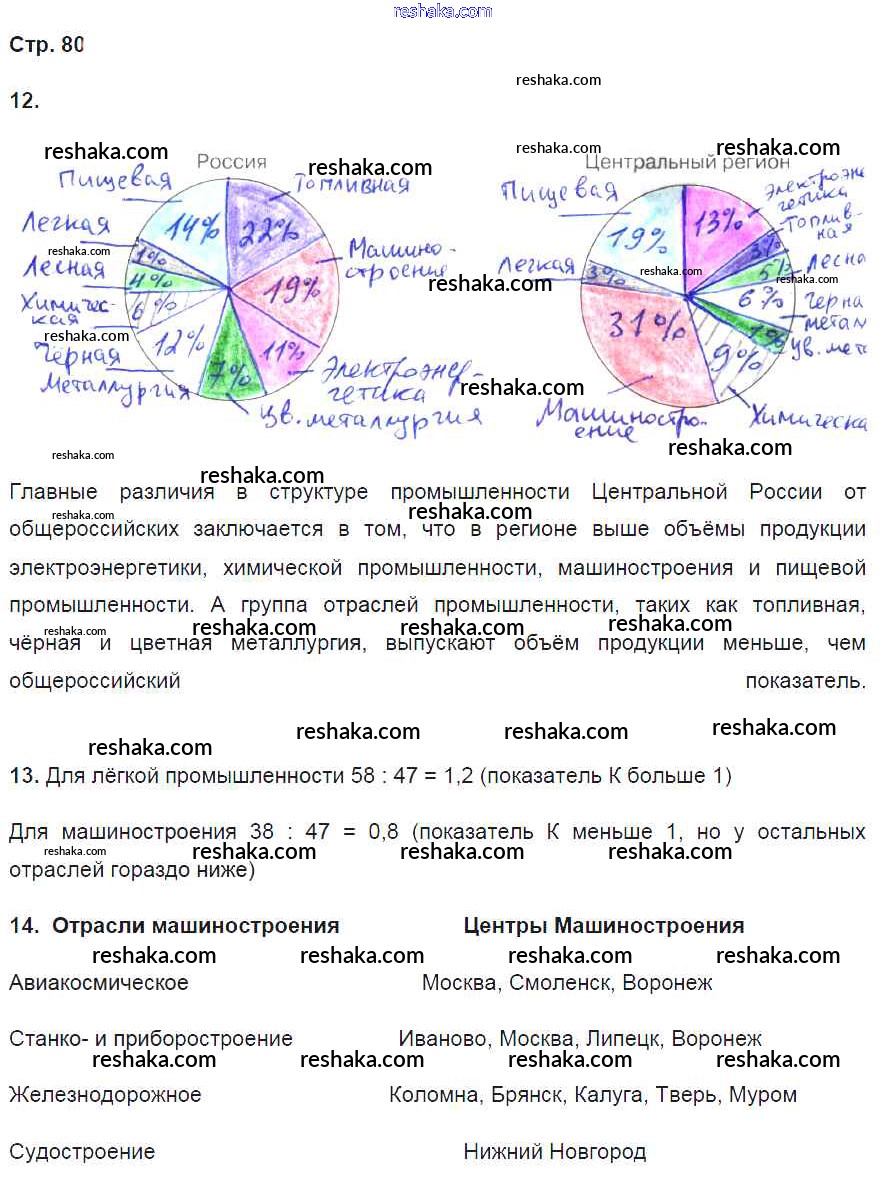 reshaka.com
Стр. 80
reshaka.com
12.
reshaka.com
reshaka.com
reshaka.com
reshaka.com
Россия
Пищевая
Топливная
Легкая
reshaka.com
Лесная
Химичес-
кая
reshaka.com
Чёрная
Металлургия
Машино-
строение
reshaka.com
Электроэнер-
гетика
Цв. металлургия
14%
22%
1%
4%
6%
19%
12%
7%
11%
Центральный регион
Пищевая
Электроэне
гетика
Топлив-
ная
Легкая
reshaka.com
Лесна
Черна
метал
reshaka.com
Цв. мет
Машиностро-
ение
Химическа
19%
13%
3%
5%
3%
6%
31%
1%
9%
reshaka.com
reshaka.com
reshaka.com
reshaka.com
Главные различия в структуре промышленности Центральной России от
reshaka.com
reshaka.com
общероссийских заключается в том, что в регионе выше объёмы продукции
электроэнергетики, химической промышленности, машиностроения и пищевой
промышленности. А группа отраслей промышленности, таких как топливная,
reshaka.com reshaka.com reshaka.com reshaka.com
чёрная и цветная металлургия, выпускают объём продукции меньше, чем
общероссийский показатель.
reshaka.com reshaka.com reshaka.com reshaka.com
13. Для лёгкой промышленности 58 : 47 = 1,2 (показатель К больше 1)
Для машиностроения 38 : 47 = 0,8 (показатель К меньше 1, но у остальных
reshaka.com reshaka.com reshaka.com reshaka.com
отраслей гораздо ниже)
14. Отрасли машиностроения Центры Машиностроения
reshaka.com reshaka.com reshaka.com reshaka.com
Авиакосмическое Москва, Смоленск, Воронеж
Станко- и приборостроение Иваново, Москва, Липецк, Воронеж
reshaka.com reshaka.com reshaka.com reshaka.com
Железнодорожное Коломна, Брянск, Калуга, Тверь, Муром
Судостроение Нижний Новгород